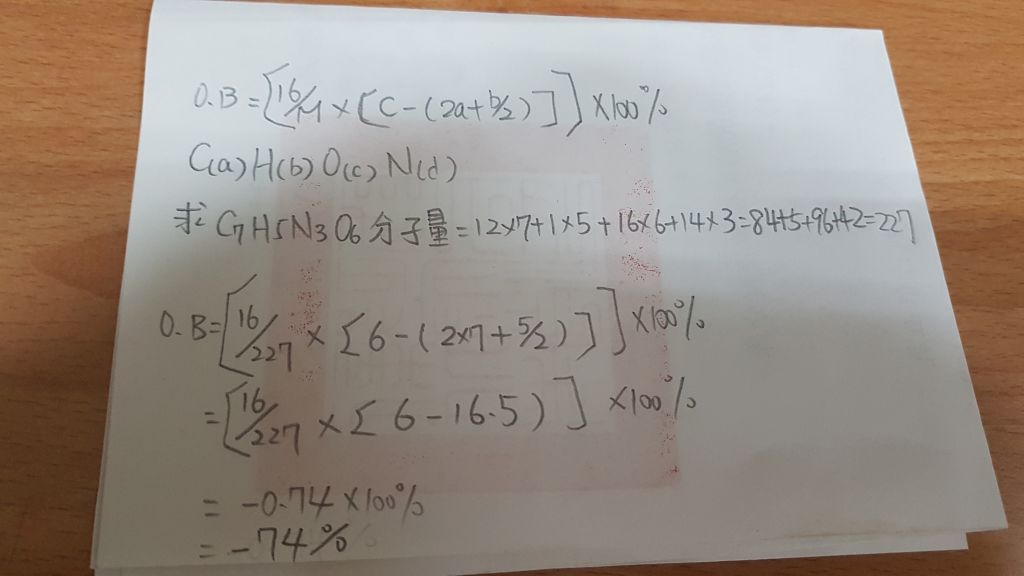 O.B=[16/M×[C-(2a+b/2)]]×100%
C(a)H(b)O(c)N(d)
求C7H5N3O6分子量=12×7+1×5+16×6+14×3=84+5+96+42=227
O.B=[16/227×[6-(2×7+5/2)]]×100%
=[16/227×[6-16.5)]×100%
=-0.74×100%
=-74%